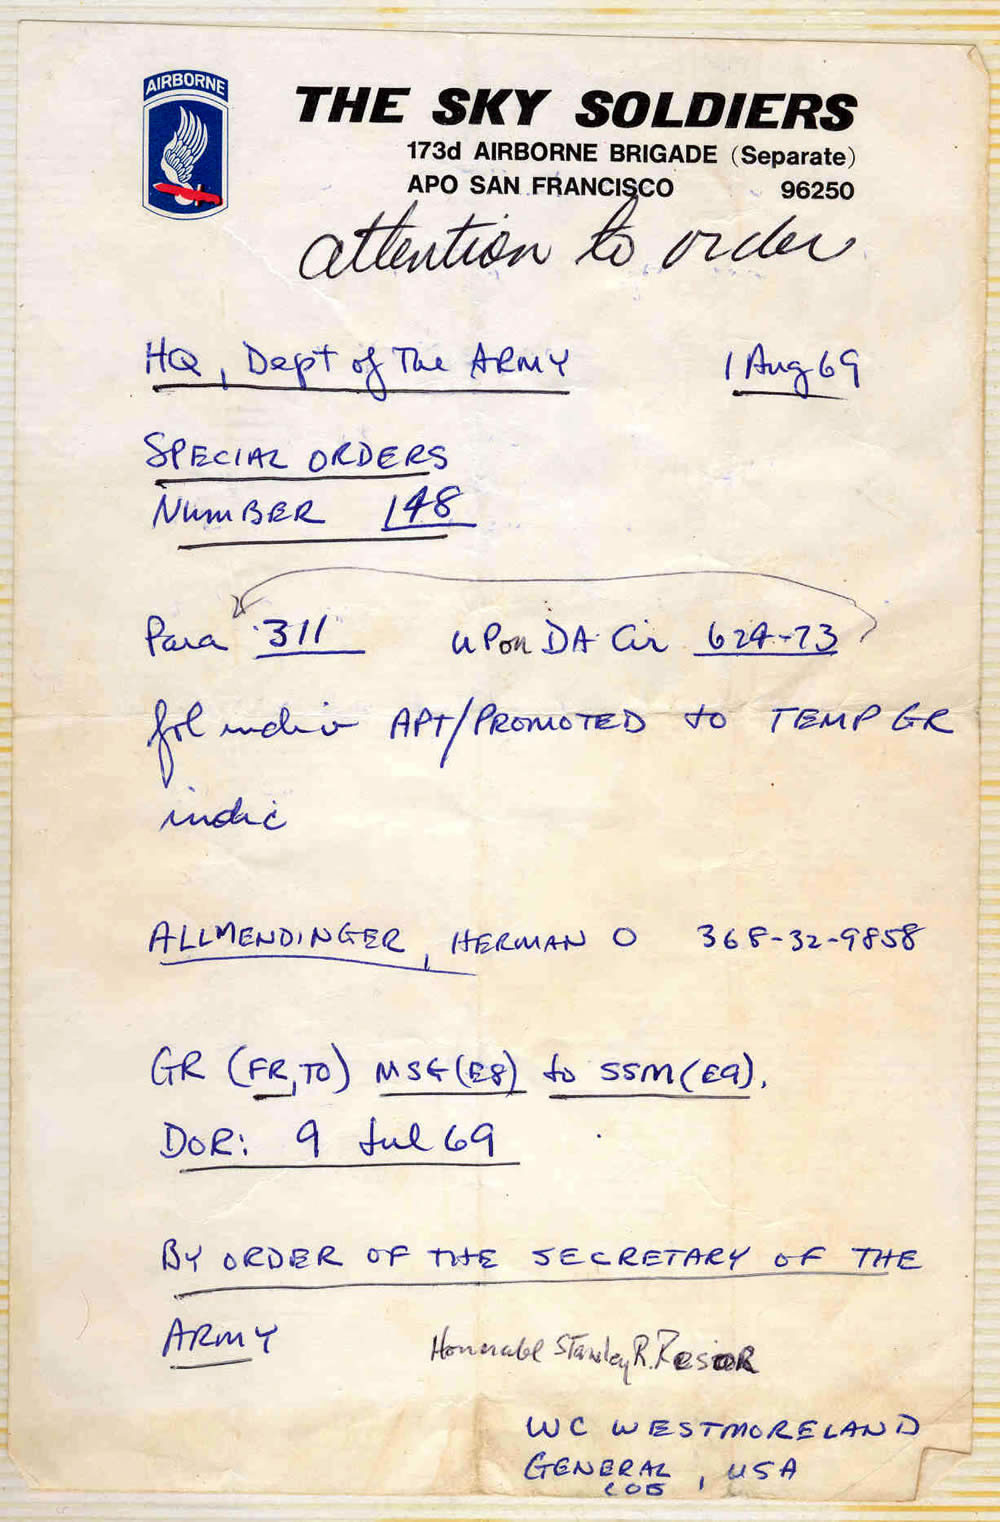 AIRBORNE
THE SKY SOLDIERS
173d AIRBORNE BRIGADE (Separate)
APO SAN FRANCISCO 96250
attention to order
HQ, Dept of The ARMY 1 Aug 69
SPECIAL ORDERS
NUMBER 148
Para 311 UPon DA Cir 624-73
fol indiv APT/PROMOTED to TEMP GR
indic
ALLMENDINGER, HERMAN O 368-32-9858
GR (FR,TO) MSG (E8) to SSM (E9).
DOR: 9 Jul 69
BY ORDER OF THE SECRETARY OF THE
ARMY Honorable Stanley R. Resior
WC WESTMORELAND
GENERAL, USA